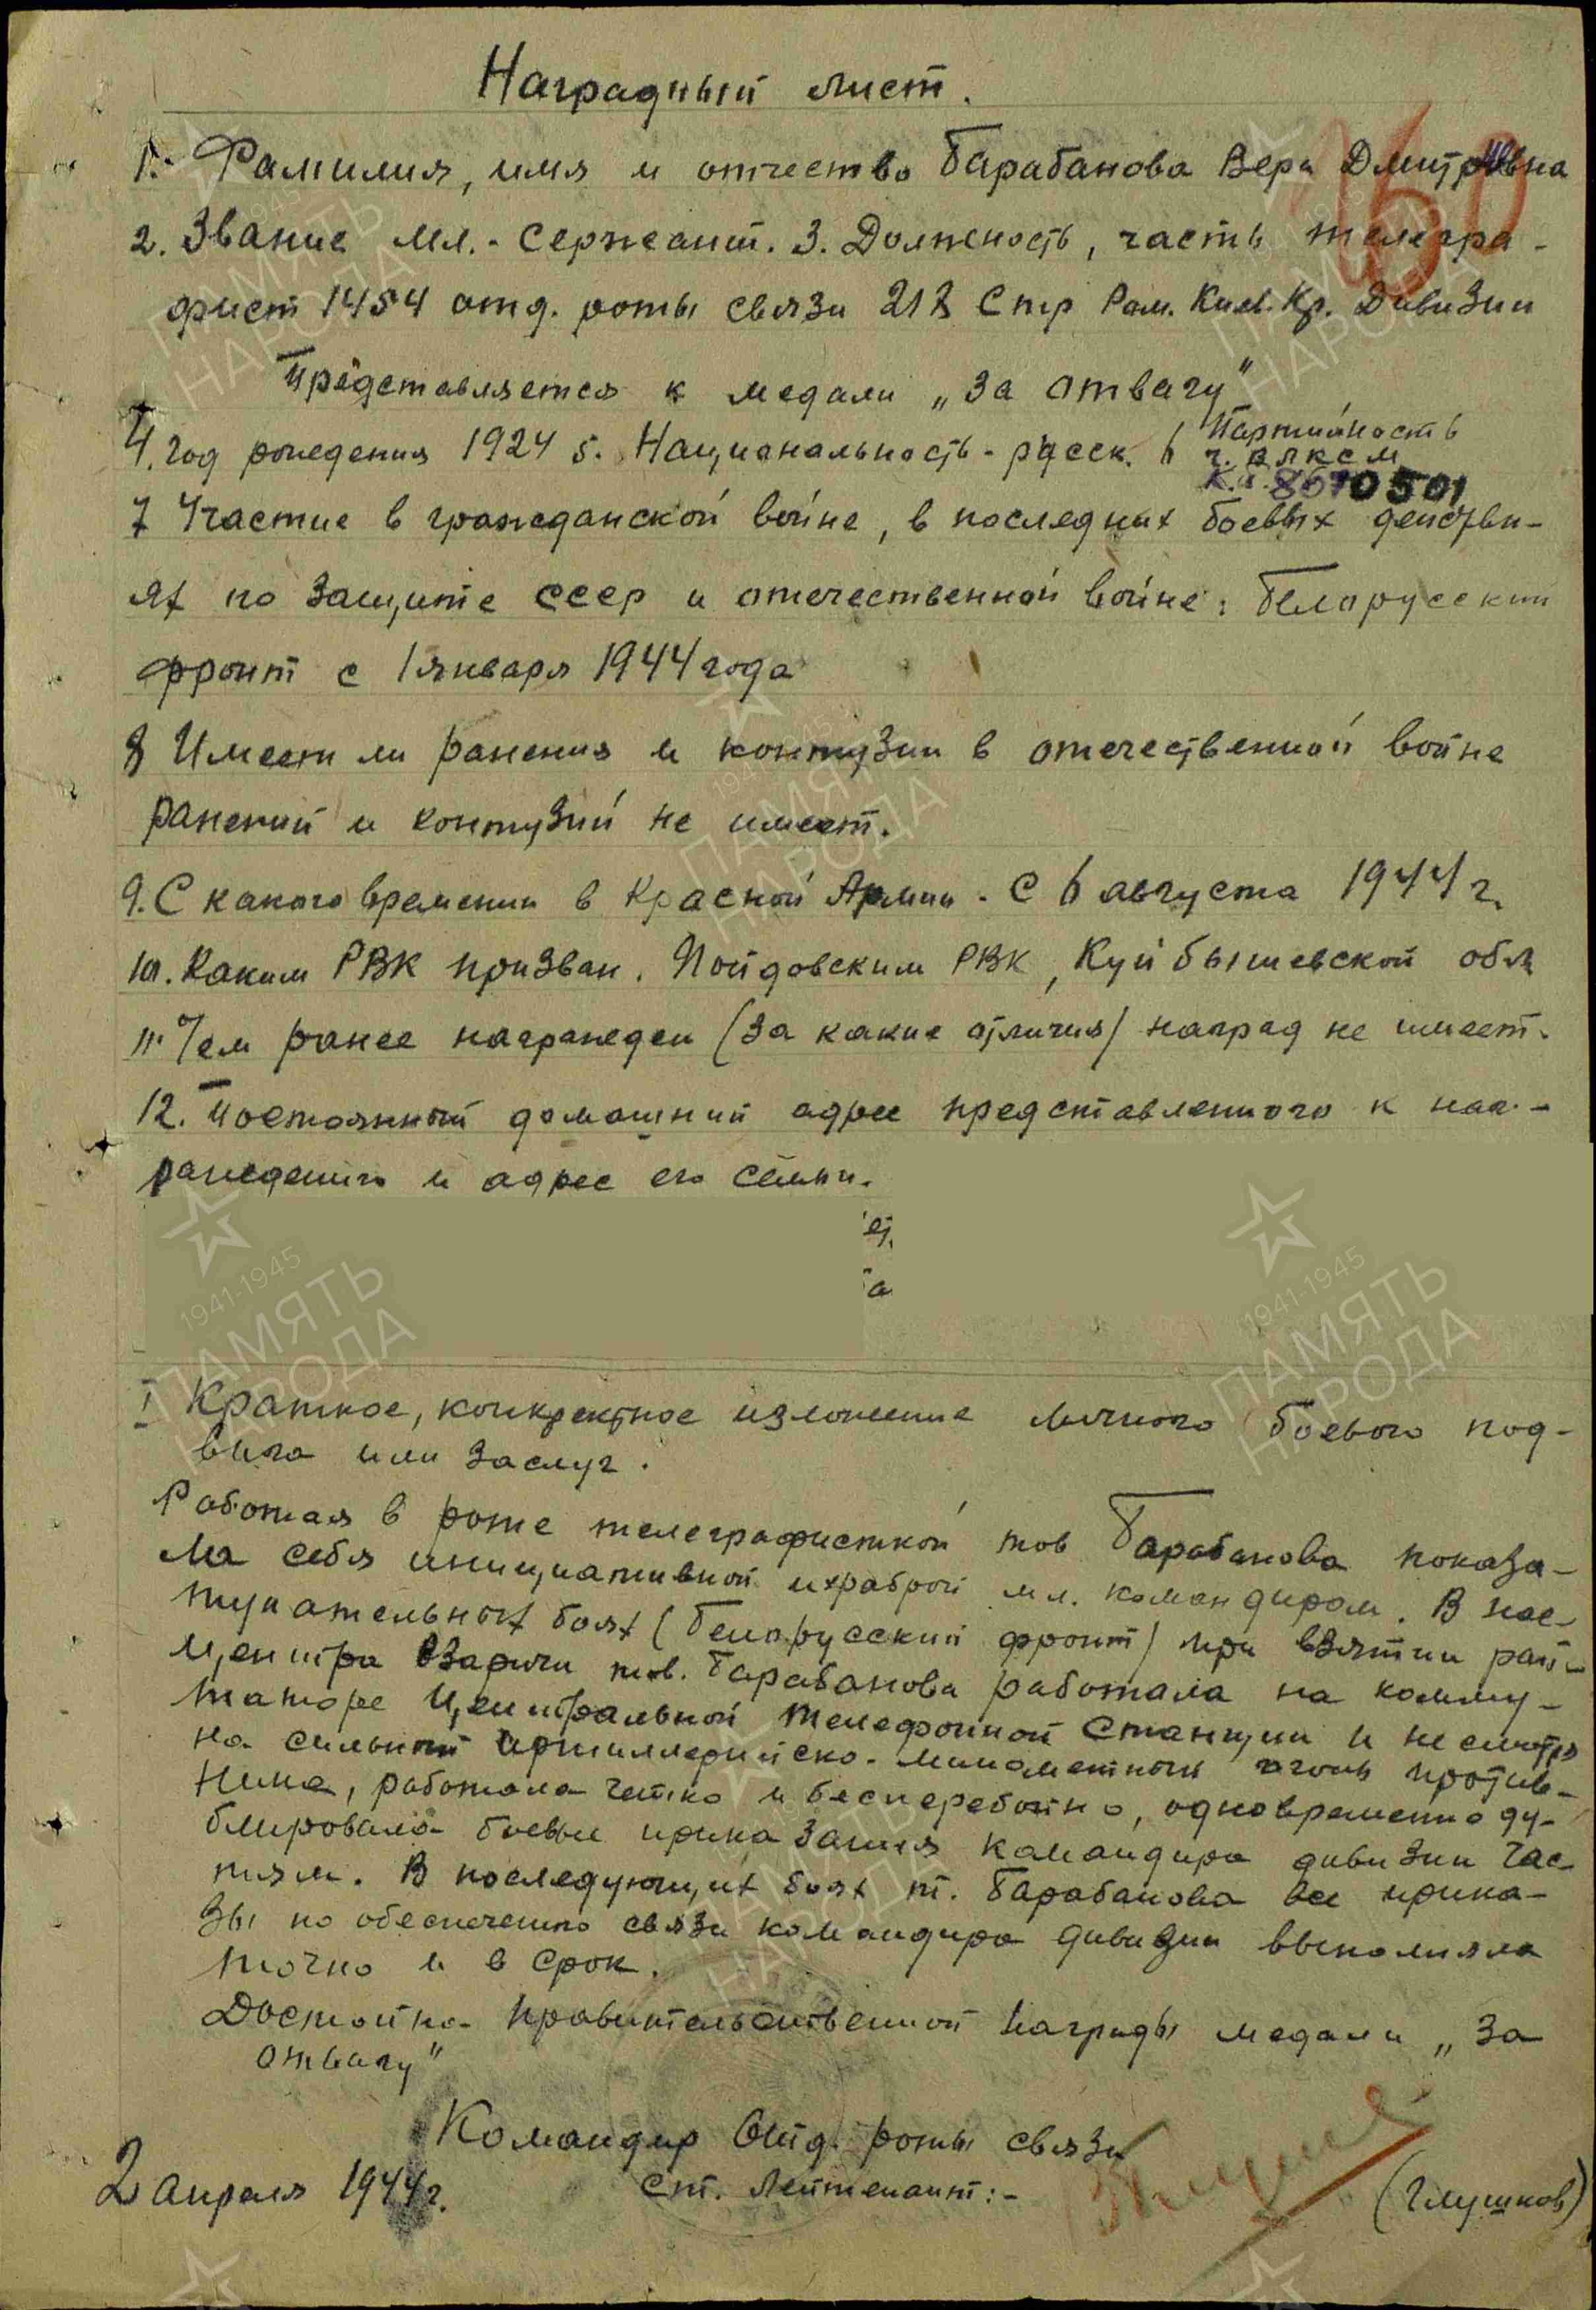 Наградный лист.
1. Фамилия, имя и отчество Барабанова Вера Дмитровна
160
2. Звание мл.- сержант. 3. Должность, часть телегра-
фист 1454 отд. роты связи 212 Стр Ром. Киев. Кр. Дивизии
Представляется к медали „За отвагу"
4. год рождения 1924 5. Национальность - русск. 6 Партийность
ч. влксм
8610501
7 Участие в гражданской войне, в последних боевых действи-
ях по защите СССР и отечественной войне: Белорусский
фронт с 1 января 1944 года
8 Имеет ли ранения и контузии в отечественной войне
ранений и контузий не имеет.
9. С какого времении в Красной Армии - С 6 августа 1944 г.
10. Каким РВК призван. РВК, Куйбышевской обл
11. Чем ранее награжден (за какие отличия) наград не имеет.
12. Постоянный домашний адрес представленного к наг-
раждению и адрес его семьи.
I Краткое, конкретное изложение личного боевого под-
вига или заслуг.
Работая в роте телеграфисткой тов Барабанова показа-
ла себя инициативной и храброй мл. командиром. В нас-
тупательных боях (Белорусский фронт) при взятии рай-
центра Озаричи тов. Барабанова работала на комму-
таторе Центральной телефонной Станции и не смотря
на сильный артиллерийско-минометный огонь против-
ника, работала четко и бесперебойно, одновременно ду-
блировала боевые приказания командира дивизии час-
тям. В последующих боях т. Барабанова все прика-
зы по обеспечению связи командира дивизии выполняла
точно и в срок.
Достойна правительственной награды медали „За
отвагу"
Командир Отд. роты связи
2 апреля 1944 г. ст. лейтенант:- (Глушков)
ПАМЯТЬ
НАРОДА
1941-1945